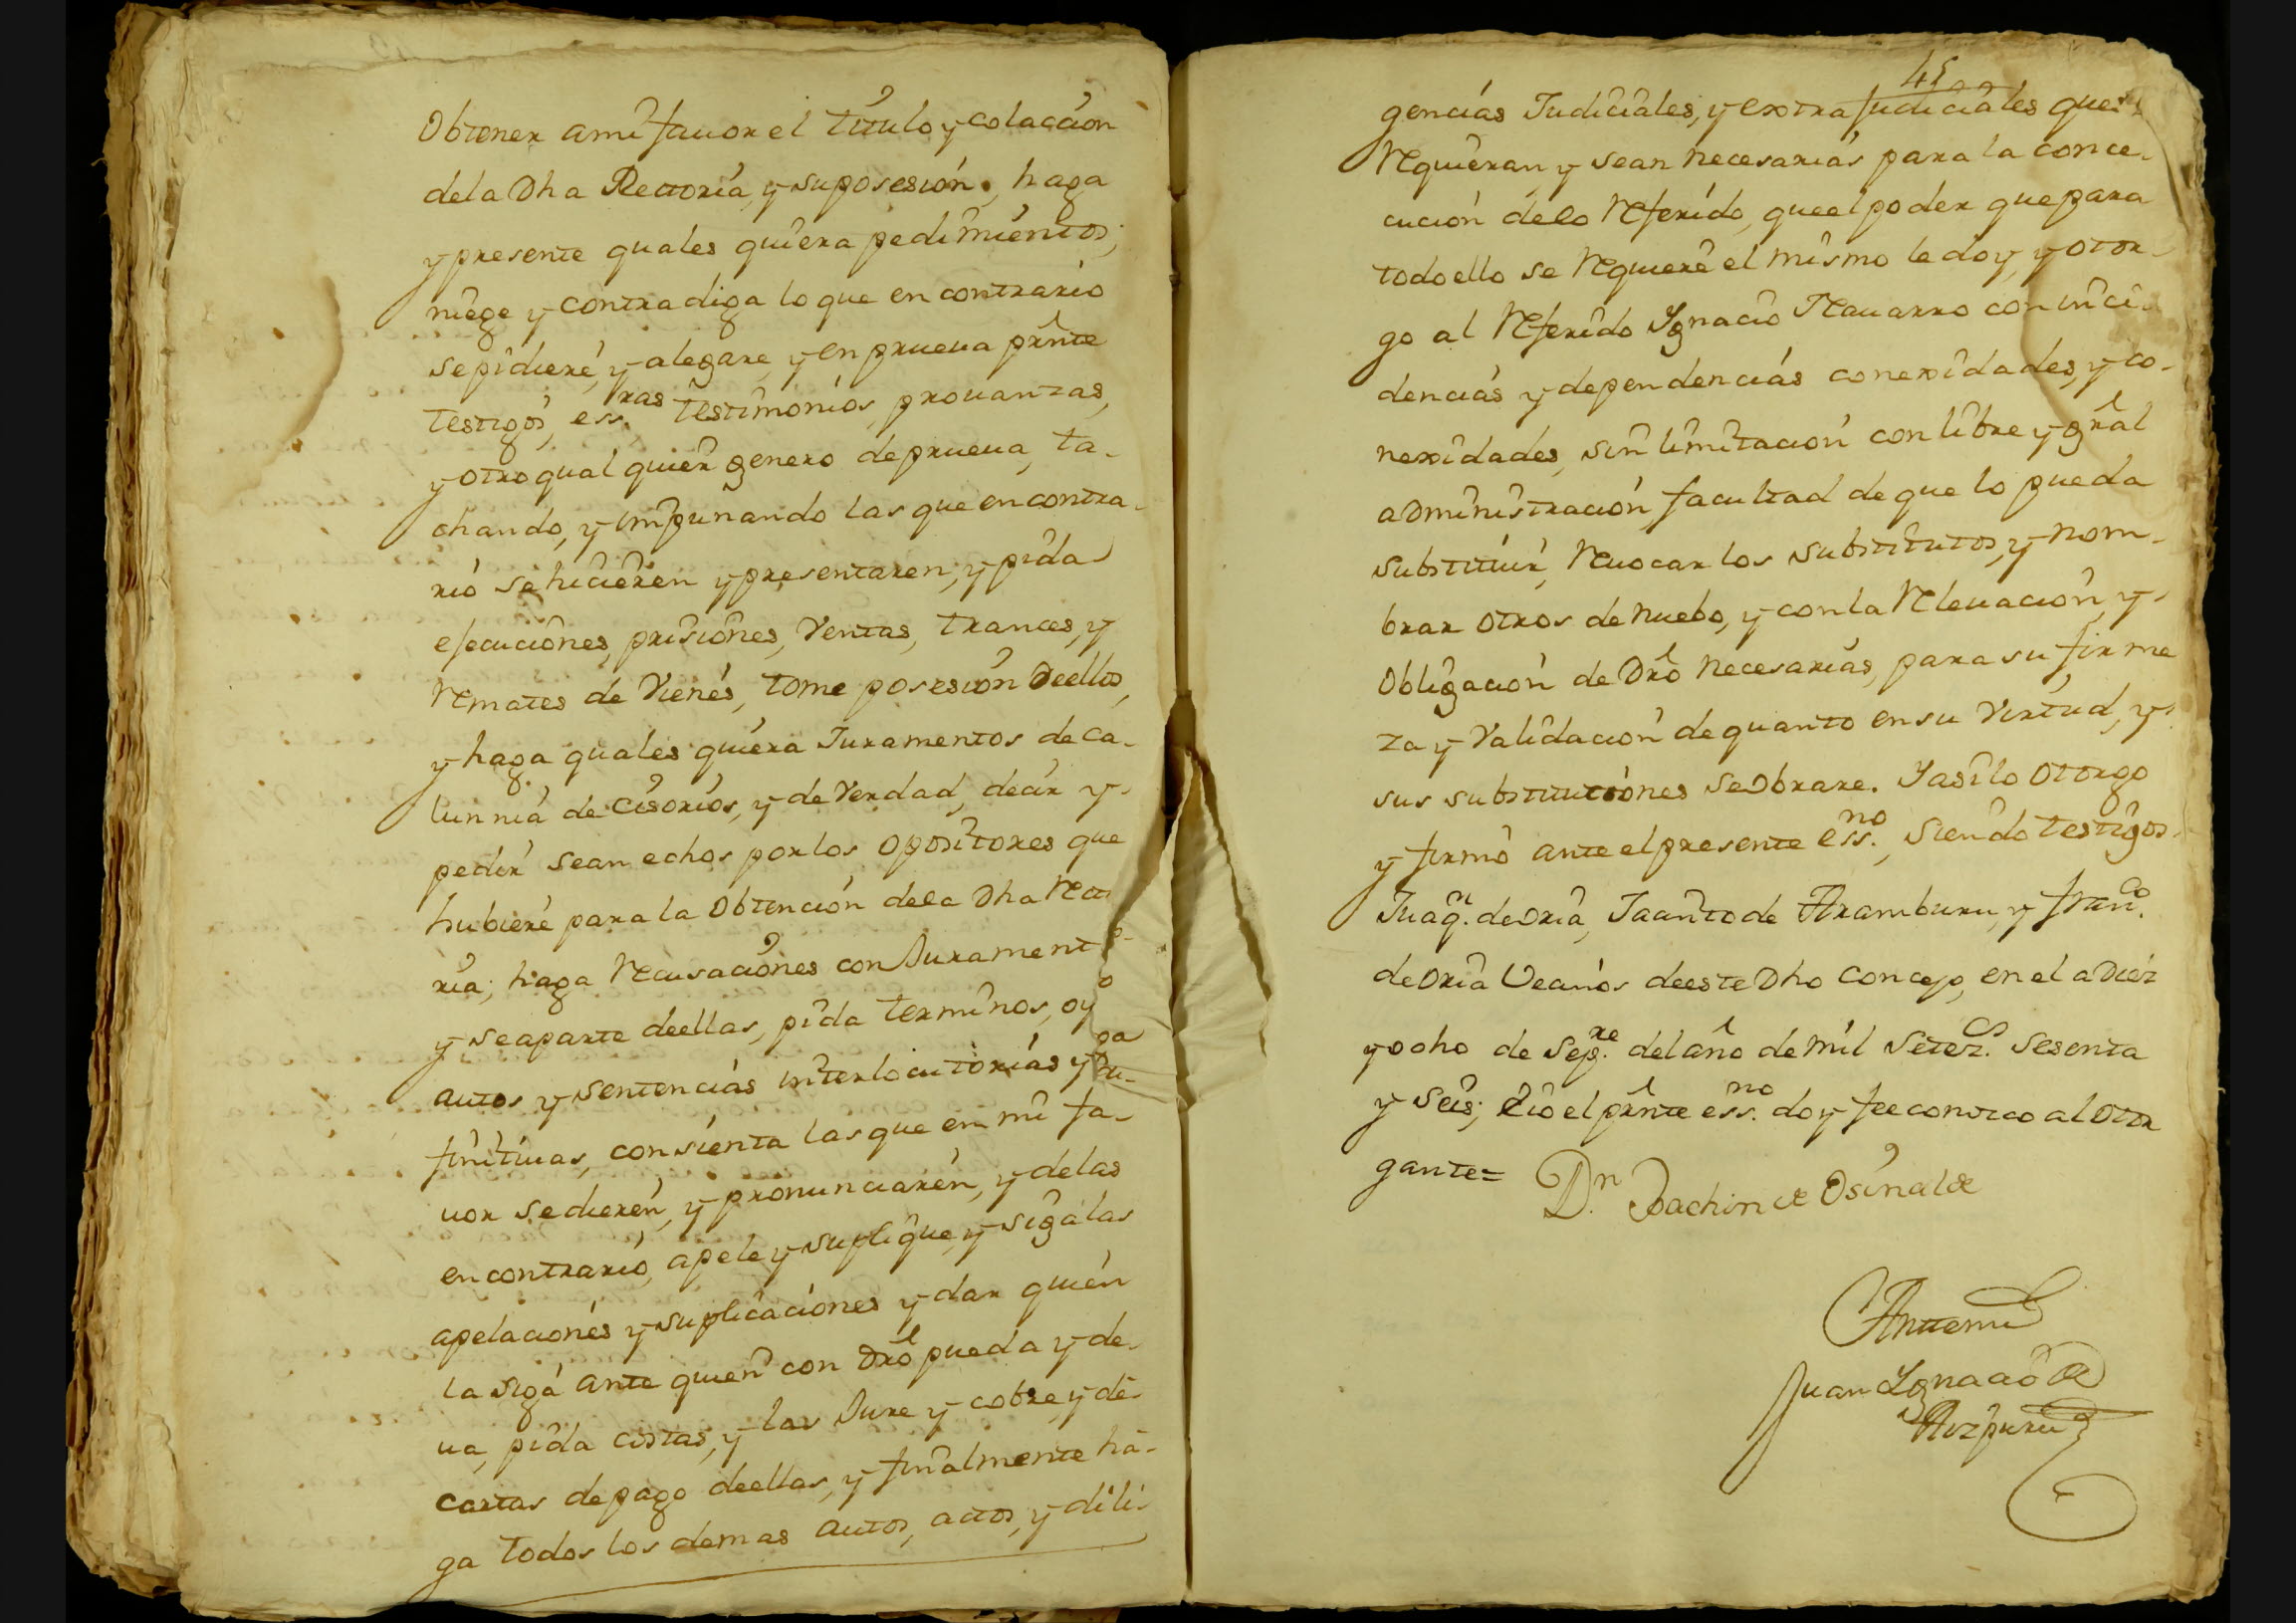 Obtener ami fauor el titulo y colacion
dela Dha Rectoria, y su posesión, haga
y presente quales quiera pedimientos;
niege y contradiga lo que en contrario
se pidiere, y alegare, y en prueua prnte
testigos, ess.ras testimonios, prouanzas,
y otro qual quier genero de prueua, ta-
chando, y impunando las que en contra-
rio se hicieren y presentaren, y pida
ejecuciones, prisiones, Ventas, trances, y
Remates de Vienes, tome posesion deellos,
y haga quales quiera Juramentos de ca-
lunnia de cisorios, y de Verdad, decir y
pedir sean echos por los opositores que
hubiere para la Obtencion dela Dha Recto
ria; haga Recusaciones con Jurament
y se aparte deellas, pida terminos, oyga
autos y sentencias interlocutorias y Du-
finitiuas, consienta las que en mi fa-
uor se dieren, y pronunciaren, y delas
en contrario, apele y suplique, y siga las
apelaciones y suplicaciones y dar quién
la siga ante quien con dro pueda y de-
ua, pida costas, y las Jure y cobre, y dé
cartas de pago deellas, y finalmente há-
ga todos los demas autos, actos, y dili-
45
gencias Judiciales, y extrajudiciales que
Requieran, y sean necesarias para la conce-
cucion delo Referido, que el poder que para
todo ello se Requiere el mismo le doy, y otor-
go al Referido Ignacio Nauarro con inci-
dencias y dependencias conexidades, y co-
nexidades, sin limitacion con libre y gral
administración facultad de que lo pueda
substituir, Reuocar los substitutos, y nom-
brar otros de nuebo, y con la Releuacion, y
Obligacion de Dro necesarias, para su firme
za y Validacion de quanto en su Virtud, y
sus substituciones se obrare. Y asi lo otorgo
y firmo ante el presente ess.no, siendo testigos
Juaq.n de Oria, Jacinto de Aramburu, y Fran.co
de Oria Vecinos deeste Dho concejo, en el a Diez
y ocho de Sep.re del año de mil setez.os sesenta
y seis; é io el prnte ess.no doy fee conozco al Otor
gante=
D.n Joachin de Osinalde
Antemi
Juan Ignacio de
Aizpuru